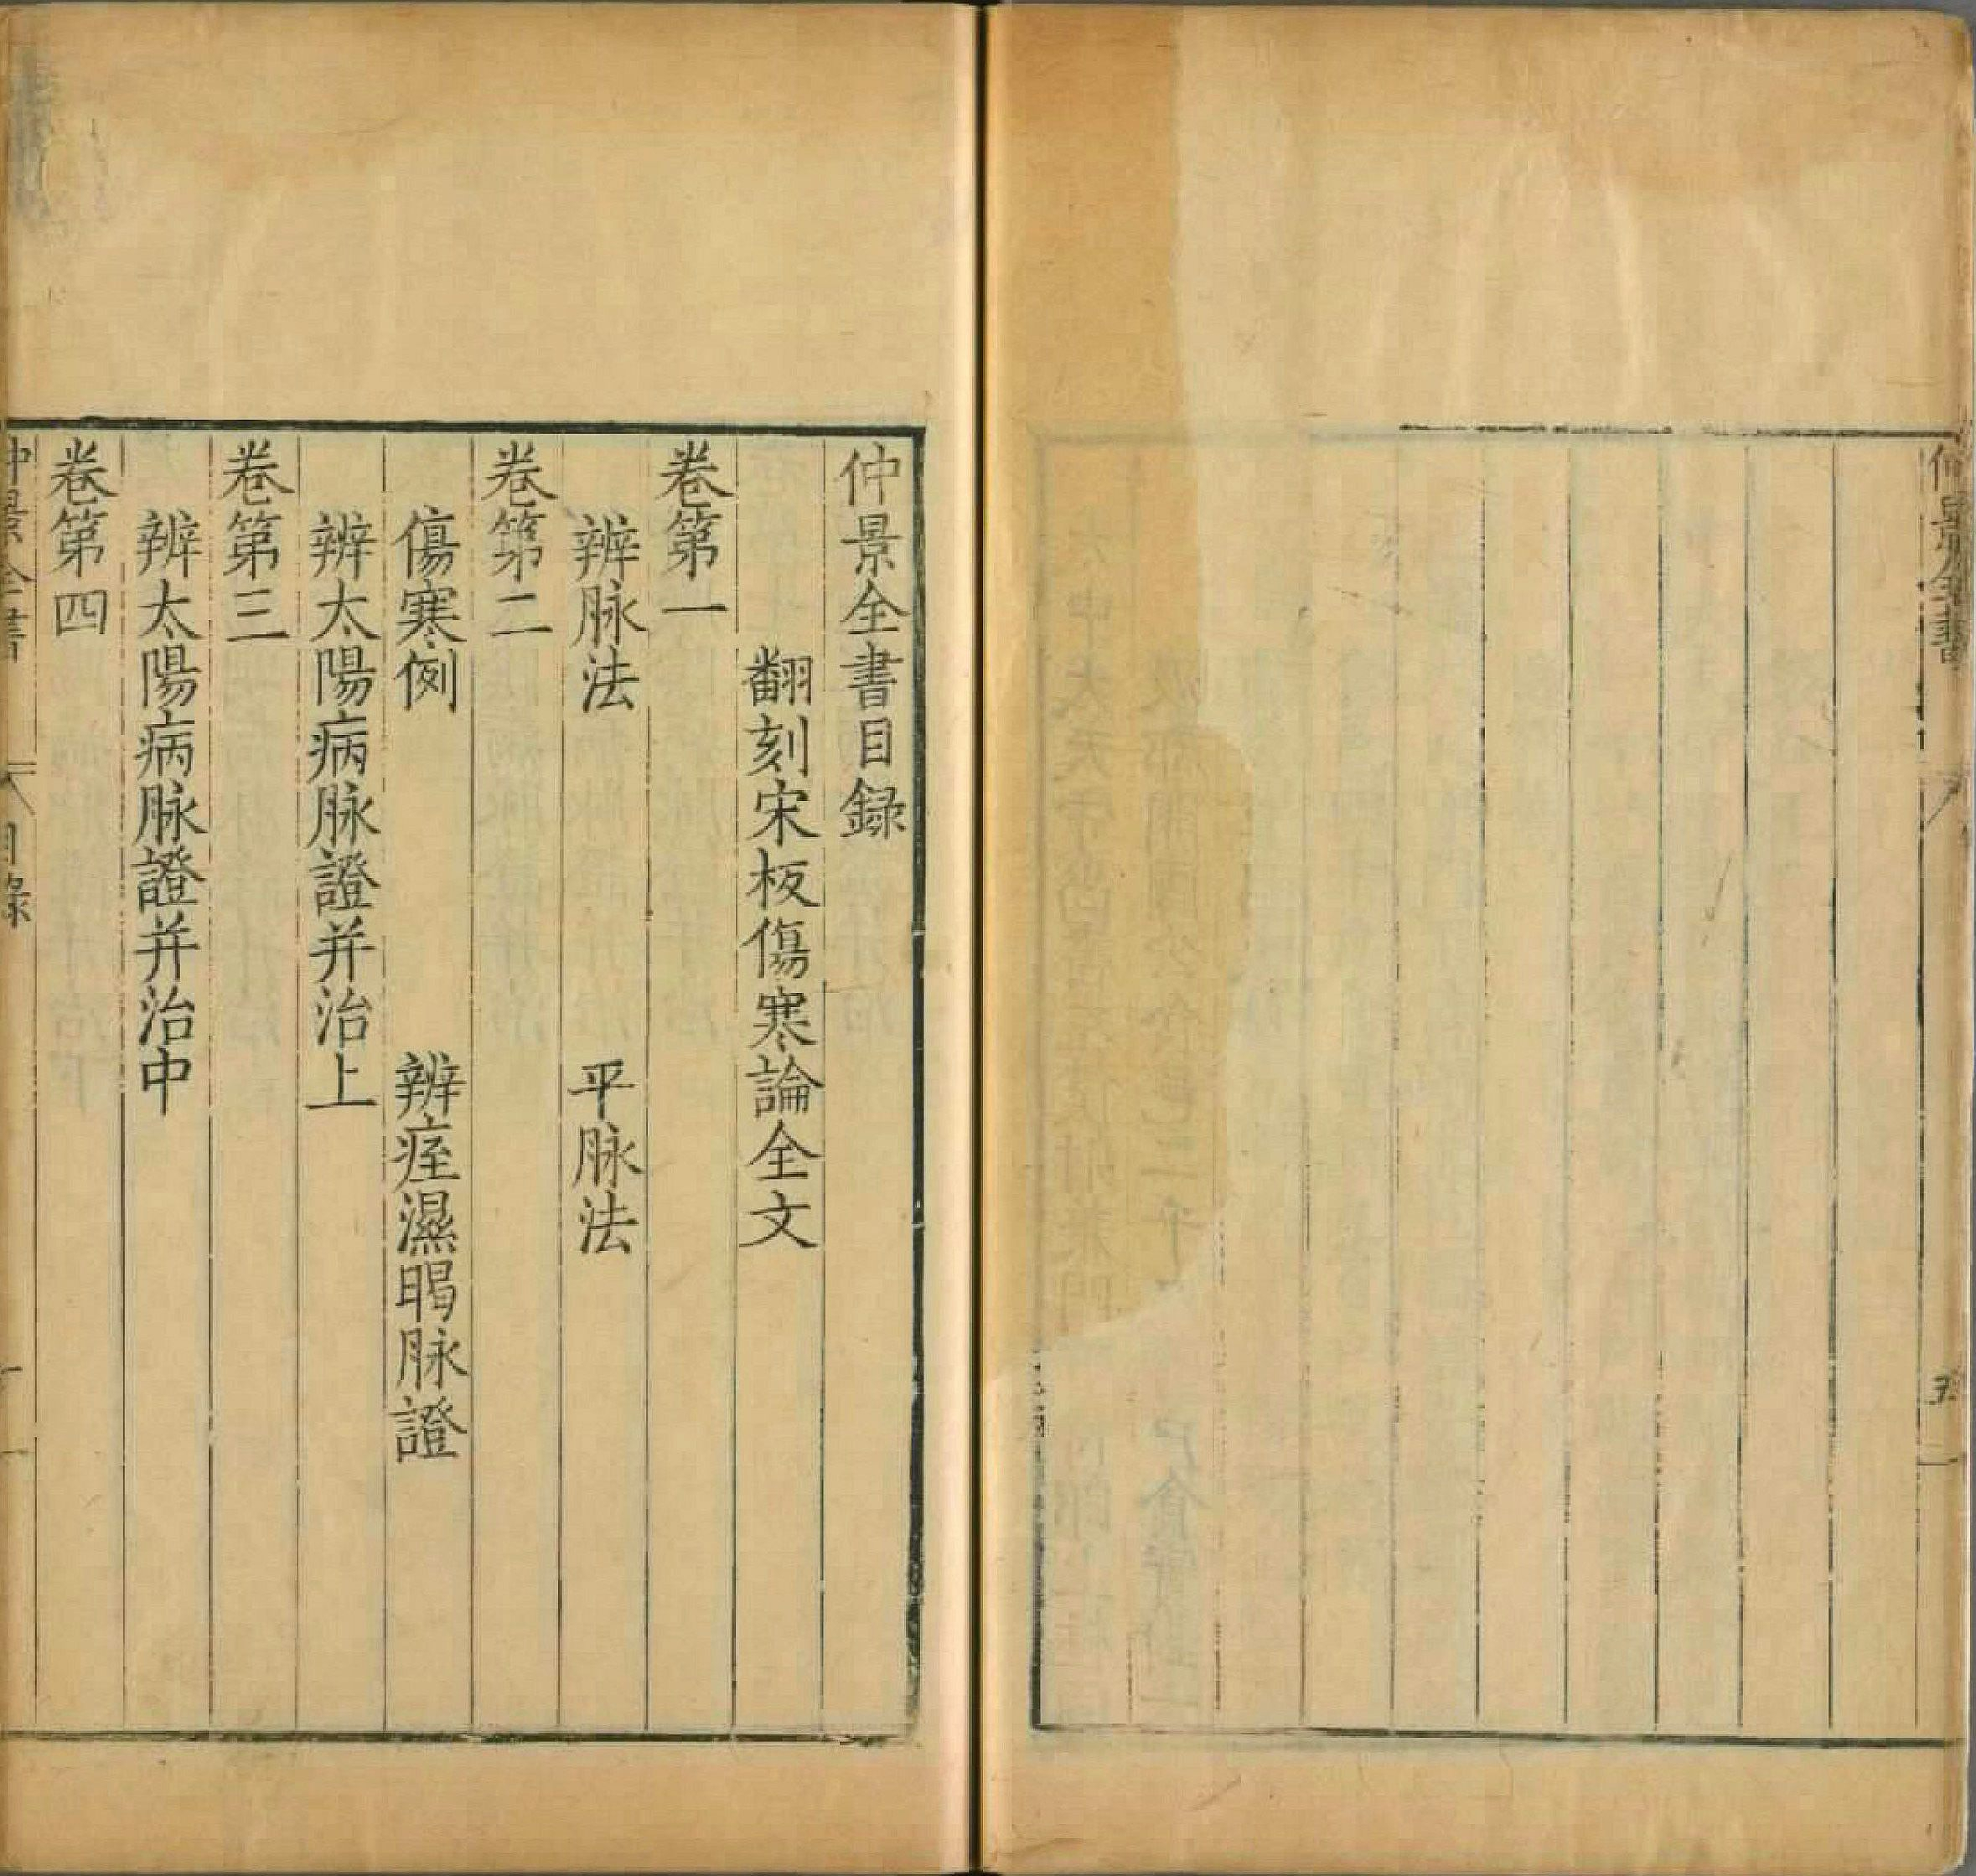 仲景全書
五
仲景全書目録
翻刻宋板傷寒論全文
卷第一
辨脉法 平脉法
卷第二
傷寒例 辨痓濕暍脉證
辨太陽病脉證并治上
卷第三
辨太陽病脉證并治中
卷第四
仲景全書 目録 一